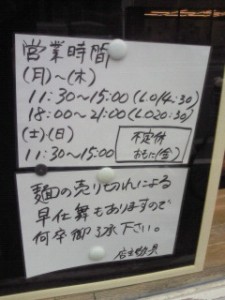 営業時間
(月)~(木)
11:30~15:00(L.O14:30)
18:00~21:00(L.O20:30)
(土)(日)
11:30~15:00
不定休
おもに(金)
麺の売り切れによる
早仕舞もありますので
何卒御了承下さい。
店主